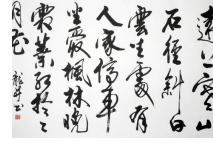 遠上寒山
石徑斜白
雲生處有
人家停車
坐愛楓林晚
霜葉紅於二
月花